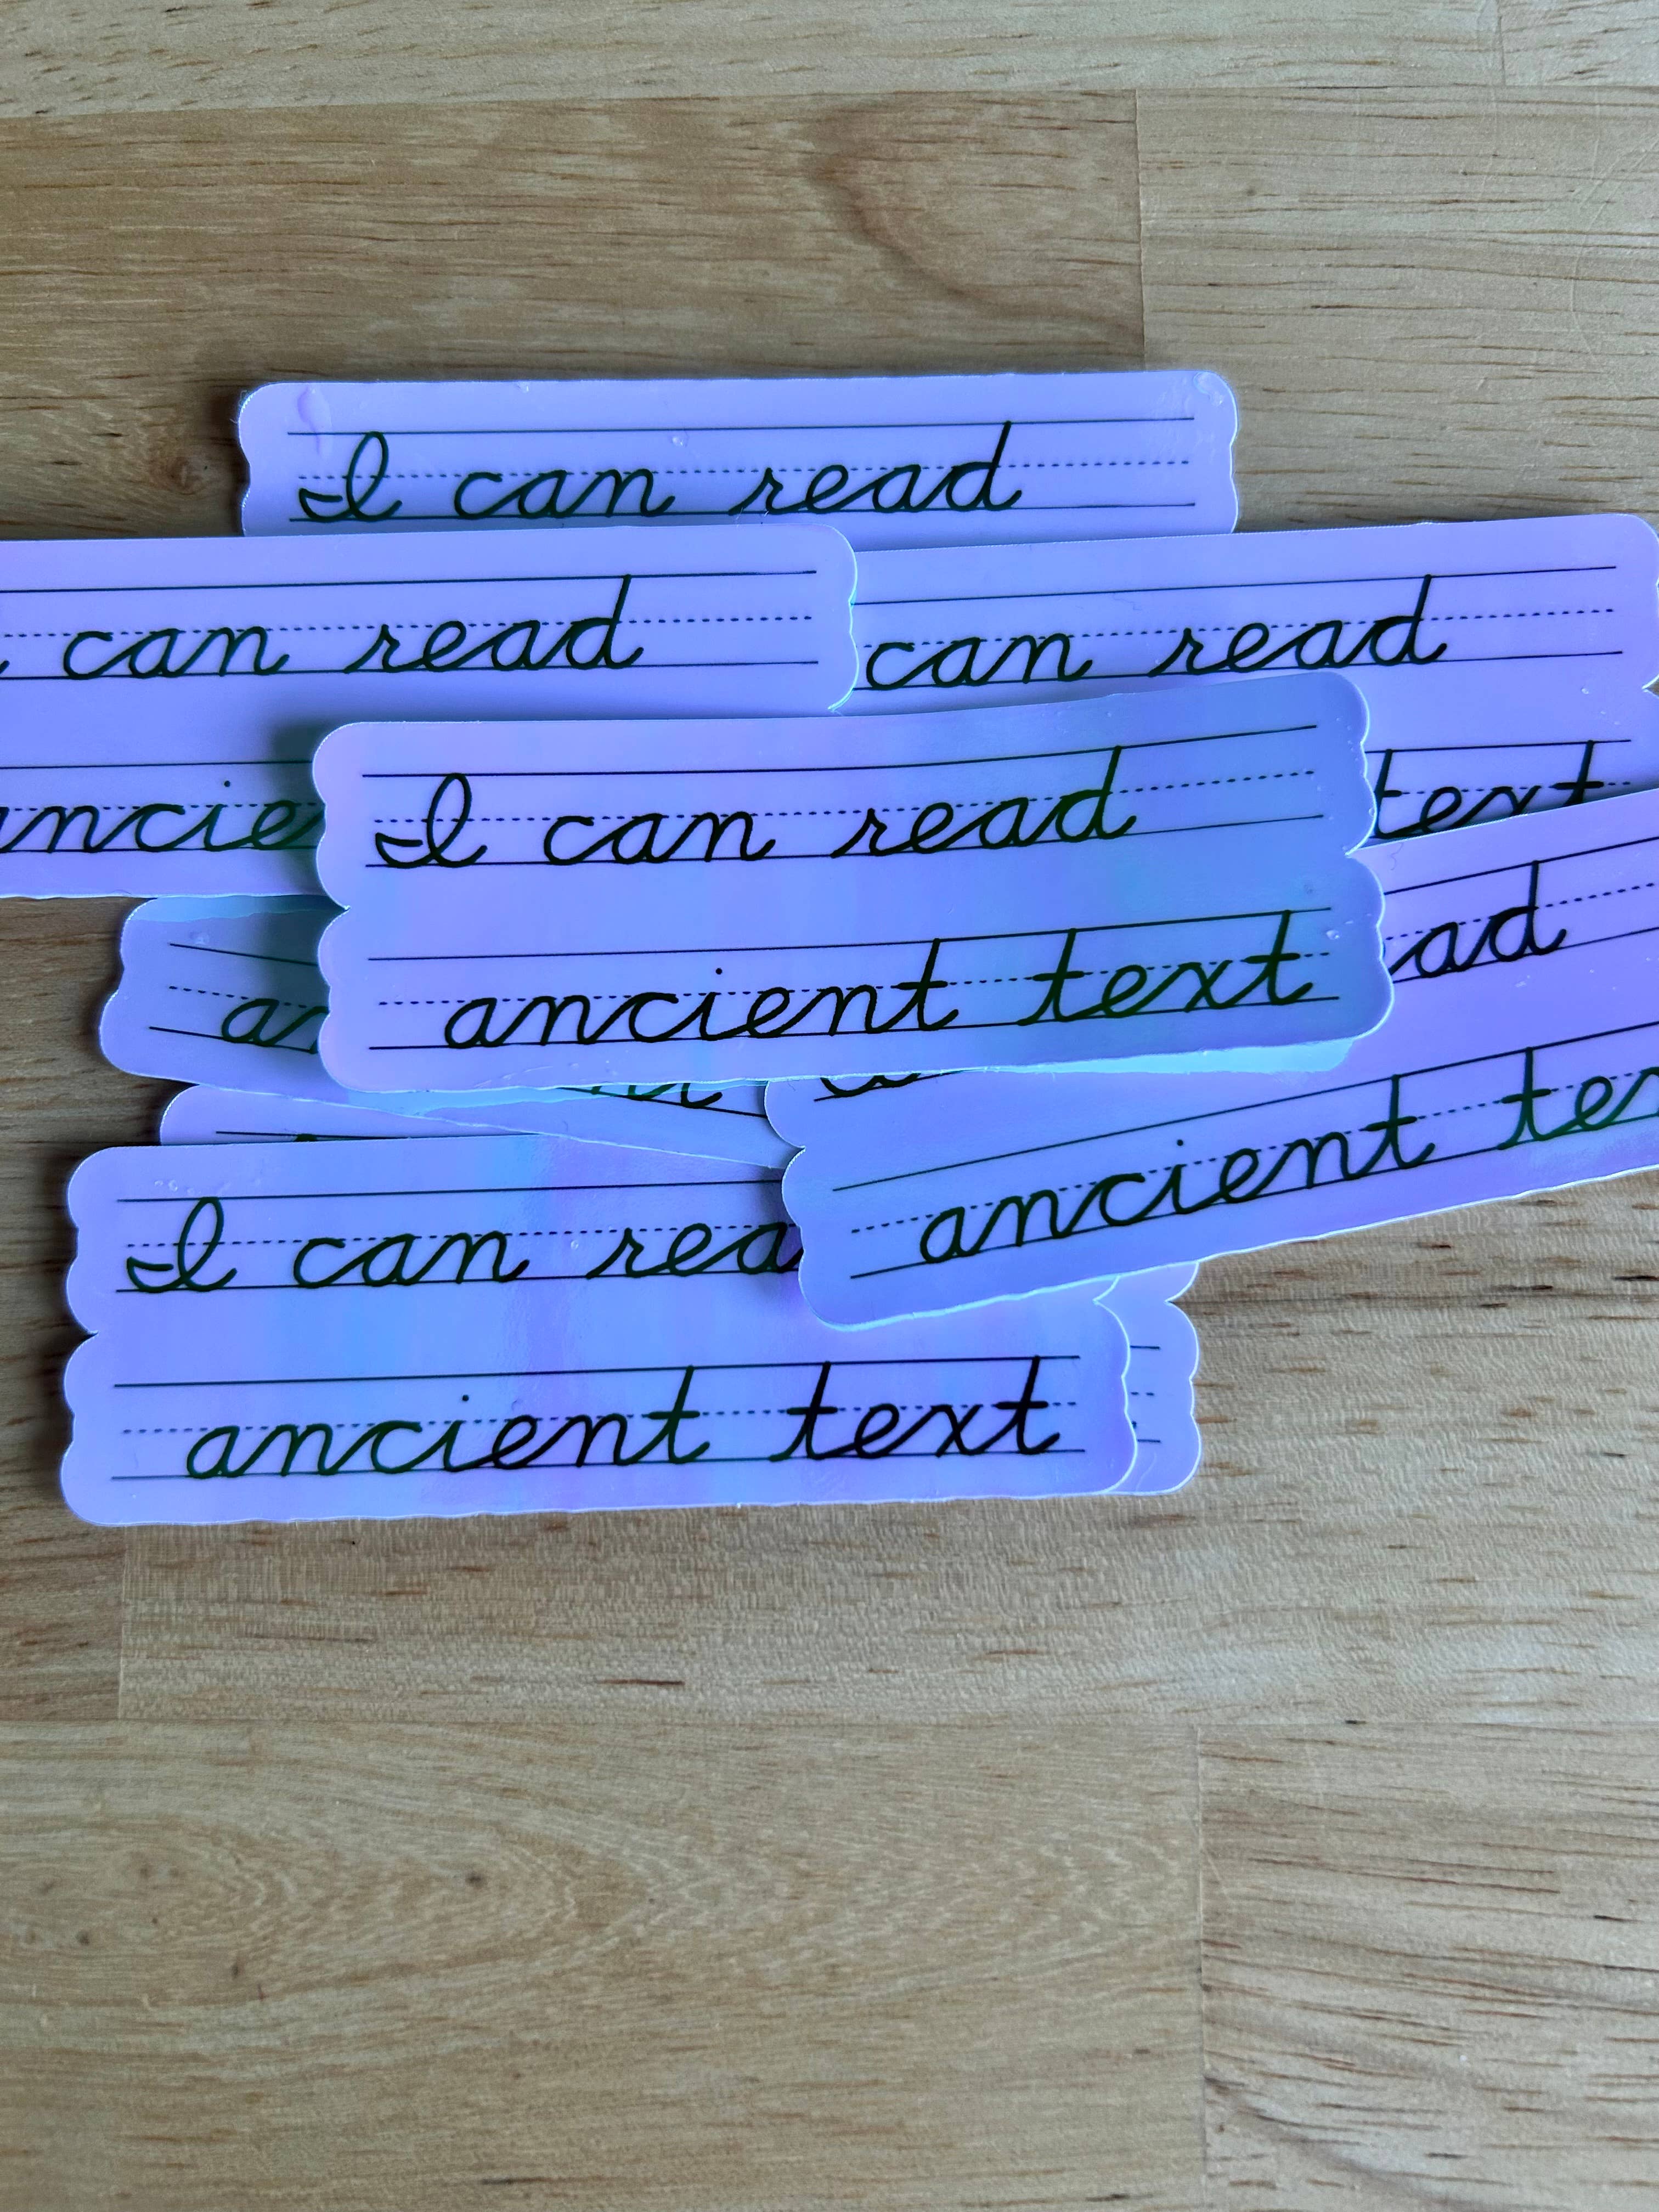 I can read
can read
can read
ancie
I can read
text
ancient text
ad
an
ancient tex
I can rea
ancient text